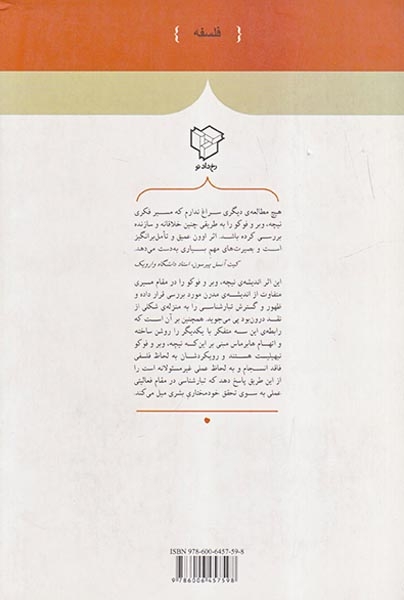 { فلسفه }
رخ‌داد نو
هیچ مطالعه‌ی دیگری سراغ ندارم که مسیر فکری
نیچه، وبر و فوکو را به طریقی چنین خلاقانه و سازنده
بررسی کرده باشد. اثر اوون عمیق و تأمل‌برانگیز
است و بصیرت‌های مهم بسیاری به‌دست می‌دهد.
کیت آنسل پیرسون، استاد دانشگاه وارویک
این اثر اندیشه‌ی نیچه، وبر و فوکو را در مقام مسیری
متفاوت از اندیشه‌ی مدرن مورد بررسی قرار داده و
ظهور و گسترش تبارشناسی را به منزله‌ی شکلی از
نقد درون‌بود پی می‌جوید. همچنین بر آن است که
رابطه‌ی این سه متفکر با یکدیگر را روشن ساخته
و اتهام هابرماس مبنی بر این‌که نیچه، وبر و فوکو
نیهیلیست هستند و رویکردشان به لحاظ فلسفی
فاقد انسجام و به لحاظ عملی غیرمسئولانه است را
از این طریق پاسخ دهد که تبارشناسی در مقام فعالیتی
عملی به سوی تحقق خودمختاری بشری میل می‌کند.
ISBN 978-600-6457-59-8
9 786006 457598